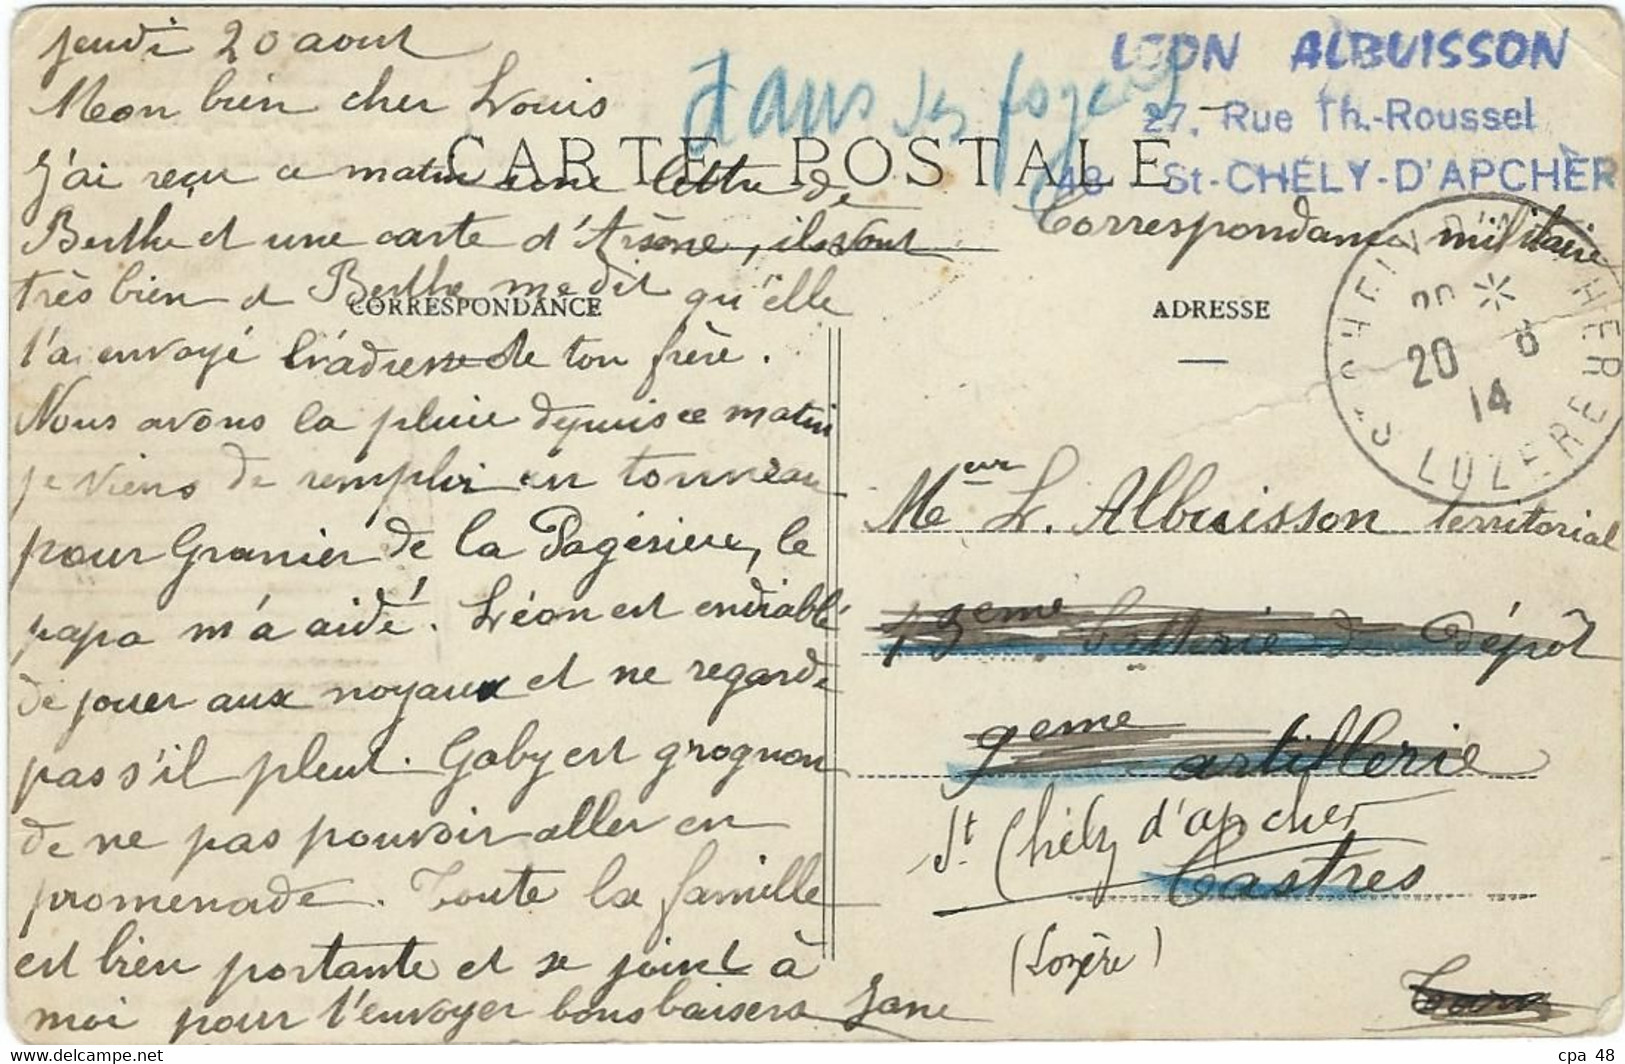 jeudi 20 aout
Mon bien cher Louis
J'ai reçu ce matin une lettre de
Berthe et une carte d'Arsène, ils vont
très bien et Berthe me dit qu'elle
t'a envoyé l'adresse de ton frère.
Nous avons la pluie depuis ce matin
je viens de remplir un tonneau
pour Granier de la Pagésière, le
papa m'a aidé. Léon est endiablé
de jouer aux noyaux et ne regarde
pas s'il pleut. Gaby est grognon
de ne pas pouvoir aller en
promenade. Toute la famille
est bien portante et se joint à
moi pour t'envoyer bons baisers Jane
dans ses foyers
CARTE POSTALE
CORRESPONDANCE
LEON ALBUISSON
27, Rue Th.-Roussel
48 St-CHÉLY-D'APCHER
Correspondance militaire
ADRESSE
20 8
14
LOZERE
Meur L. Albuisson territorial
13eme batterie de dépôt
9eme artillerie
St Chély d'apcher
Castres
(Lozère)
Tarn
cpa 48